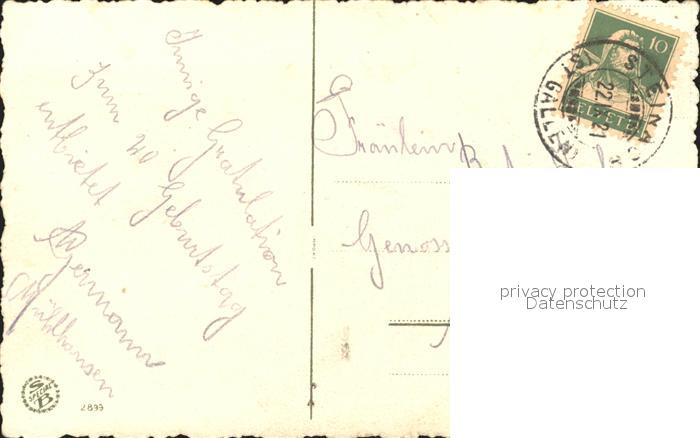 Innige Gratulation
Zum 20 Geburtstag
entbietet
Hermann
Mühlhausen
Fräulein
Genoss
10
HELVETIA
STEINACH
(ST. GALLEN)
22.
21
S SPECIAL B
2899
privacy protection
Datenschutz